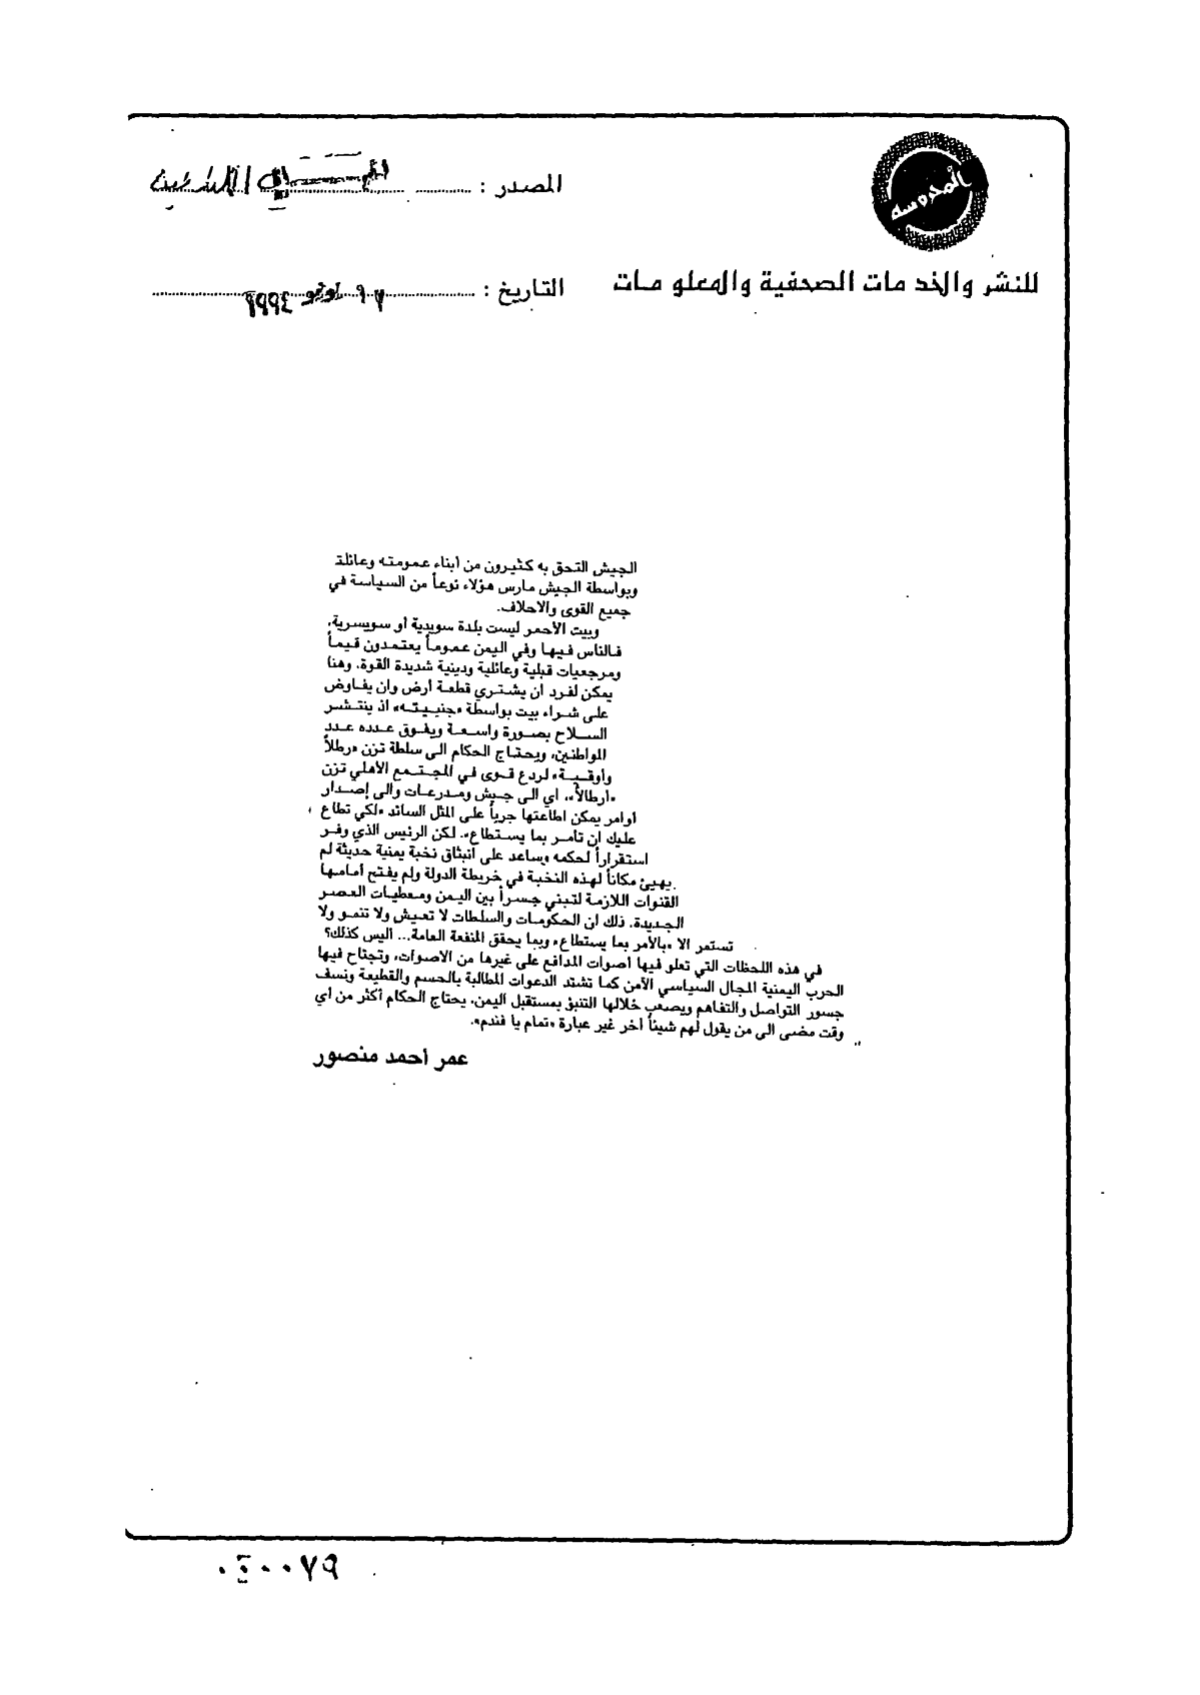 المحروسة
المصدر :
للنشر والخدمات الصحفية والمعلومات
التاريخ : يونيو ١٩٩٤
الجيش التحق به كثيرون من أبناء عمومته وعائلته
وبواسطة الجيش مارس هؤلاء نوعاً من السياسة في
جميع القوى والاحلاف.
وبيت الأحمر ليست بلدة سويدية أو سويسرية،
فالناس فيها وفي اليمن عموماً يعتمدون قيماً
ومرجعيات قبلية وعائلية ودينية شديدة القوة. وهنا
يمكن لفرد ان يشتري قطعة أرض وان يفاوض
على شراء بيت بواسطة «جنبيته» اذ ينتشر
السلاح بصورة واسعة ويفوق عدده عدد
المواطنين، ويحتاج الحكام الى سلطة تزن «رطلاً
وأوقية» لردع قوى في المجتمع الأهلي تزن
«ارطالاً»، اي الى جيش ومدرعات والى إصدار
اوامر يمكن اطاعتها جرياً على المثل السائد «لكي تطاع
عليك ان تأمر بما يستطاع». لكن الرئيس الذي وفر
استقراراً لحكمه وساعد على انبثاق نخبة يمنية حديثة لم
يهيئ مكاناً لهذه النخبة في خريطة الدولة ولم يفتح أمامها
القنوات اللازمة لتبني جسراً بين اليمن ومعطيات العصر
الجديدة. ذلك ان الحكومات والسلطات لا تعيش ولا تنمو ولا
تستمر الا «بالأمر بما يستطاع» وبما يحقق المنفعة العامة... اليس كذلك؟
في هذه اللحظات التي تعلو فيها اصوات المدافع على غيرها من الاصوات، وتجتاح فيها
الحرب اليمنية المجال السياسي الآمن كما تشتد الدعوات المطالبة بالحسم والقطيعة ونسف
جسور التواصل والتفاهم ويصعب خلالها التنبؤ بمستقبل اليمن، يحتاج الحكام أكثر من أي
وقت مضى الى من يقول لهم شيئاً آخر غير عبارة «تمام يا فندم».
عمر أحمد منصور
٠٤٠٠٧٩